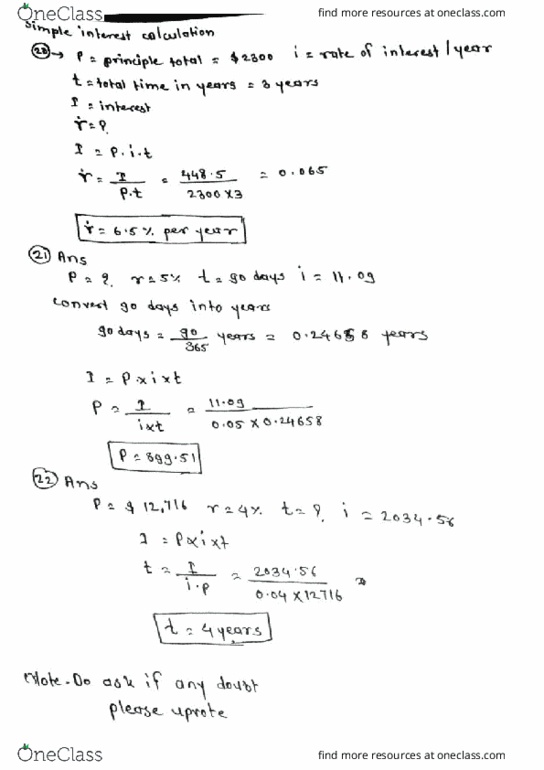 OneClass
find more resources at oneclass.com
Simple interest calculation
20 → P = principle total = $2300 i = rate of interest/year
t = total time in years = 3 years
I = interest
r = ?
I = P.i.t
r = I / P.t = 448.5 / 2300 x 3 = 0.065
r = 6.5% per year
21 Ans
P = ? r = 5% t = 90 days i = 11.09
convert 90 days into years
90 days = 90 / 365 years = 0.24658 years
I = P x i x t
P = I / ixt = 11.09 / 0.05 x 0.24658
P = 899.51
22 Ans
P = $12,716 r = 4% t = ? i = 2034.56
I = P x i x t
t = I / i.p = 2034.56 / 0.04 x 12716
t = 4 years
Note - Do ask if any doubt
please uprote
OneClass
find more resources at oneclass.com